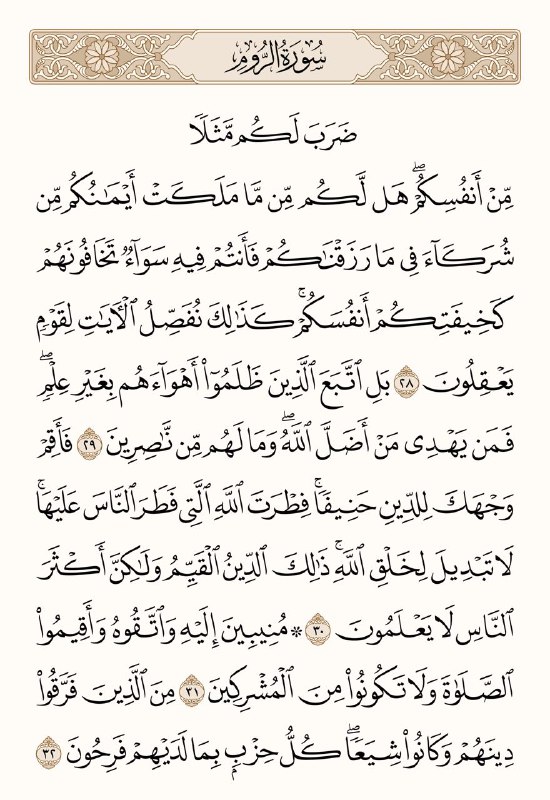 سُورَةُ الرُّومِ
ضَرَبَ لَكُم مَّثَلًا
مِّنْ أَنفُسِكُمْۖ هَل لَّكُم مِّن مَّا مَلَكَتْ أَيْمَٰنُكُم مِّن
شُرَكَآءَ فِى مَا رَزَقْنَٰكُمْ فَأَنتُمْ فِيهِ سَوَآءٌ تَخَافُونَهُمْ
كَخِيفَتِكُمْ أَنفُسَكُمْۚ كَذَٰلِكَ نُفَصِّلُ ٱلْءَايَٰتِ لِقَوْمٍ
يَعْقِلُونَ ٢٨ بَلِ ٱتَّبَعَ ٱلَّذِينَ ظَلَمُوٓا۟ أَهْوَآءَهُم بِغَيْرِ عِلْمٍۖ
فَمَن يَهْدِى مَنْ أَضَلَّ ٱللَّهُۖ وَمَا لَهُم مِّن نَّٰصِرِينَ ٢٩ فَأَقِمْ
وَجْهَكَ لِلدِّينِ حَنِيفًاۚ فِطْرَتَ ٱللَّهِ ٱلَّتِى فَطَرَ ٱلنَّاسَ عَلَيْهَاۚ
لَا تَبْدِيلَ لِخَلْقِ ٱللَّهِۚ ذَٰلِكَ ٱلدِّينُ ٱلْقَيِّمُ وَلَٰكِنَّ أَكْثَرَ
ٱلنَّاسِ لَا يَعْلَمُونَ ٣٠ ۞ مُنِيبِينَ إِلَيْهِ وَٱتَّقُوهُ وَأَقِيمُوا۟
ٱلصَّلَوٰةَ وَلَا تَكُونُوا۟ مِنَ ٱلْمُشْرِكِينَ ٣١ مِنَ ٱلَّذِينَ فَرَّقُوا۟
دِينَهُمْ وَكَانُوا۟ شِيَعًاۖ كُلُّ حِزْبٍۭ بِمَا لَدَيْهِمْ فَرِحُونَ ٣٢